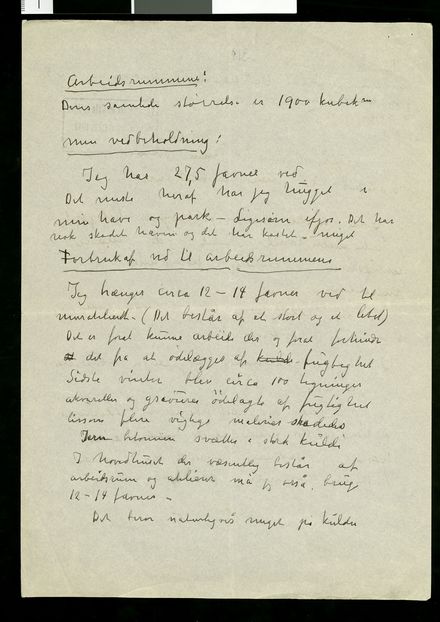 Arbeidsrummene:
Deres samlede størrelse er 1900 kubikm
min vedbeholdning:
Jeg har 27,5 favner ved
Det meste heraf har jeg hugget i
min have og park – ligesom ifjor. Det har
nok skadet haven og det har kostet meget
Forbruk af ved til arbeidsrummene
Jeg trænger circa 12 – 14 favner ved til
(Det består af et stort og et lidet)
Det er foral kunne arbeide der og foral forhindre
det fra at ødelægges af fugtighet
Sidste vinter blev circa 100 tegninger
akvareller og gravurer ødelagte af fugtighet
ligesom flere vigtige malerier skadedes
Jern betonnen svætter i stærk kulde
I hovedhuset der væsentlig består af
arbeidsrum og atelierer må jeg også bruge
12 – 14 favner –
Det beror naturligvis meget på kulden